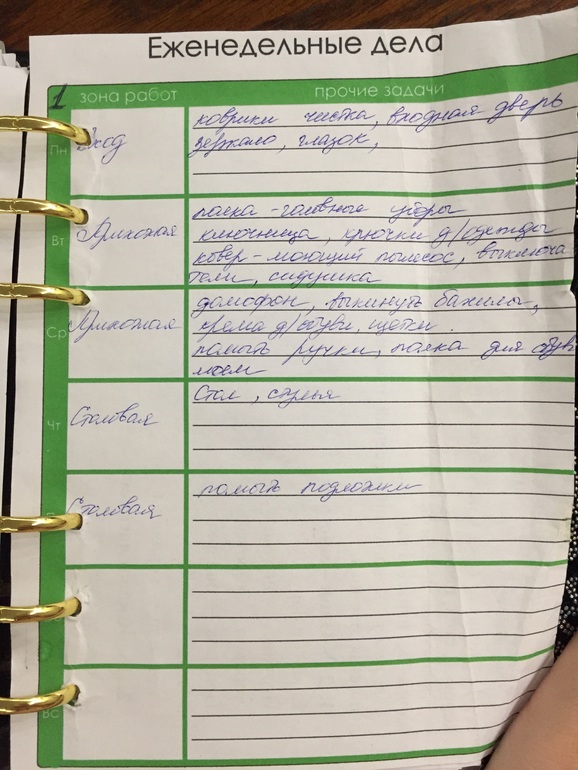 Еженедельные дела
1 зона работ прочие задачи
Пн Вход коврики чистка, входная дверь
зеркало, глазок,
Вт Прихожая полка - головные уборы
ключница, крючки д/одежды
ковер - моющий пылесос, выключа
тели, сидушка
Ср Прихожая домофон, выкинуть бахилы,
крема д/обуви, щетки.
помыть ручки, полка для обуви
моем
Чт Столовая Стол, стулья
Столовая помыть подложки
Вс